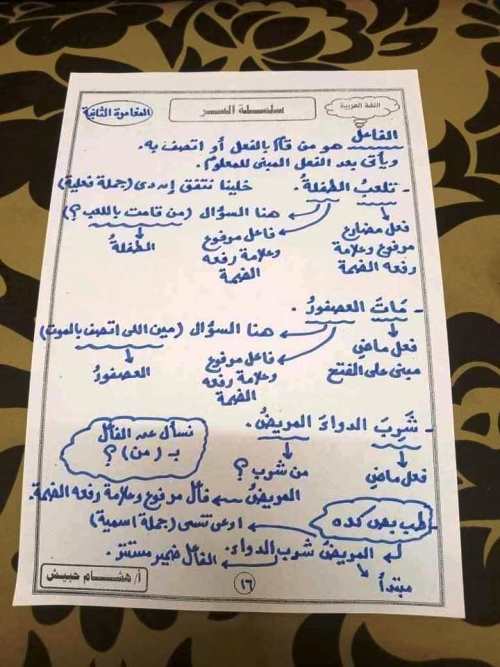 اللغة العربية
سلسلة السر
المغامرة الثانية
الفاعل هو من قام بالفعل أو اتصف به.
ويأتى بعد الفعل المبنى للمعلوم.
- تلعبُ الطفلةُ. خلينا نتفق إن دى (جملة فعلية)
هنا السؤال (من قامت باللعب ؟)
فعل مضارع مرفوع وعلامة رفعه الضمة
فاعل مرفوع وعلامة رفعه الضمة
الطفلةُ
- مَاتَ العصفورُ.
هنا السؤال (مين اللى اتصف بالموت)
فعل ماضٍ مبنى على الفتح
فاعل مرفوع وعلامة رفعه الضمة
العصفورُ
- شَرِبَ الدواءَ المريضُ.
نسأل عن الفاعل بـ (من) ؟
فعل ماضٍ
من شرب ؟
المريضُ ← فاعل مرفوع وعلامة رفعه الضمة.
- طب بص كده
اوعى تنسى (جملة اسمية)
المريضُ شرب الدواءَ. الفاعل ضمير مستتر.
مبتدأ
١٦
أ/ هشام حبيش